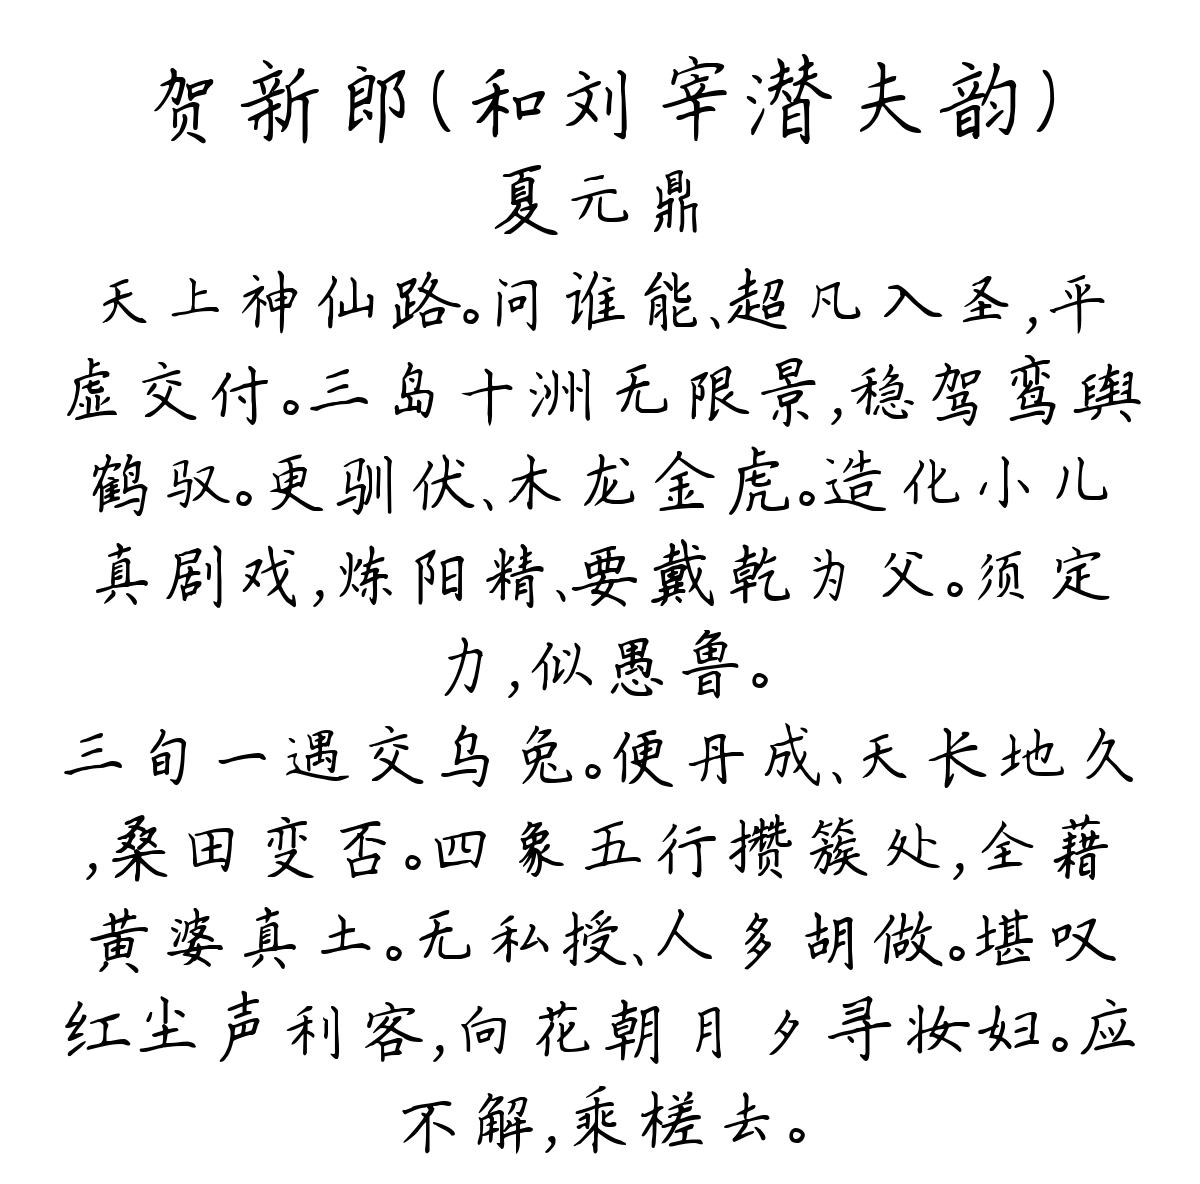 贺新郎(和刘宰潜夫韵)
夏元鼎
天上神仙路。问谁能、超凡入圣,平
虚交付。三岛十洲无限景,稳驾鸾舆
鹤驭。更驯伏、木龙金虎。造化小儿
真剧戏,炼阳精、要戴乾为父。须定
力,似愚鲁。
三旬一遇交乌兔。便丹成、天长地久
,桑田变否。四象五行攒簇处,全藉
黄婆真土。无私授、人多胡做。堪叹
红尘声利客,向花朝月夕寻妆妇。应
不解,乘槎去。